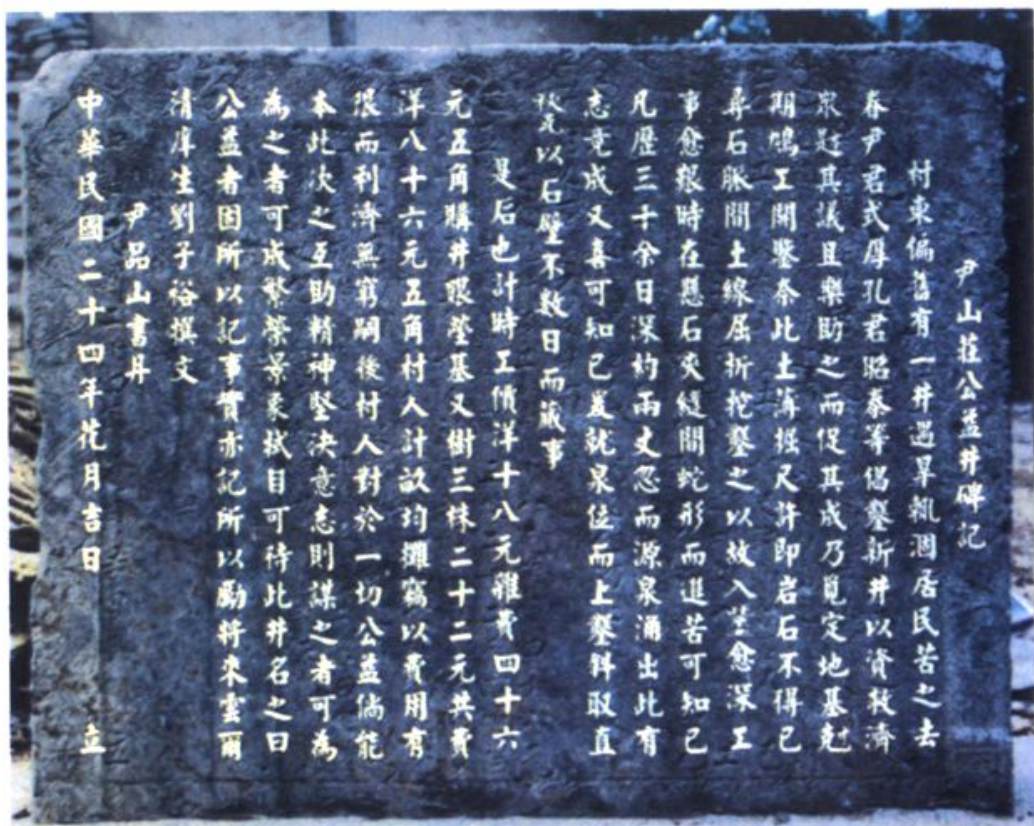 尹山莊公益井碑記
村東偏舊有一井遇旱輒涸居民苦之去
春尹君式厚孔君昭泰等倡鑿新井以資救濟
眾韙其議且樂助之而促其成乃覓定地基剋
期鳩工開鑿奈此土薄掘尺許即岩石不得已
尋石脈間土線屈折挖鑿之以故入益愈深工
事愈艱時在懸石夾縫間蛇形而進苦可知已
凡歷三千余日深約兩丈忽而源泉涌出此有
志竟成又喜可知已爰就泉位而上鑿斜取直
以石壁不數日而蕆事
是后也計時工價洋十八元雜費四十六
元五角購井眼塋基又樹三株二十二元共費
洋八十六元五角村人計畝均攤竊以費用有
限而利濟無窮嗣後村人對於一切公益倘能
本此次之互助精神堅決意志則謀之者可為
為之者可成繁榮景象拭目可待此井名之曰
公益者固所以記事實亦記所以勵將來云爾
清庠生劉子裕撰文
尹品山書丹
中華民國二十四年花月吉日 立